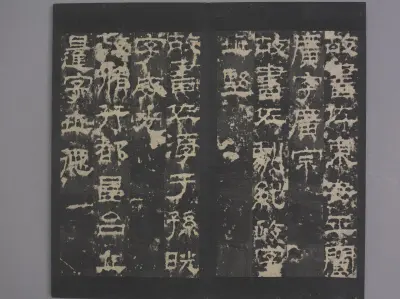 故書佐東安平閻
廣字廣宗
故書佐劇紀政字
堅
故書佐淳于孫晄
字威
故脩行都昌台丘
暹字德